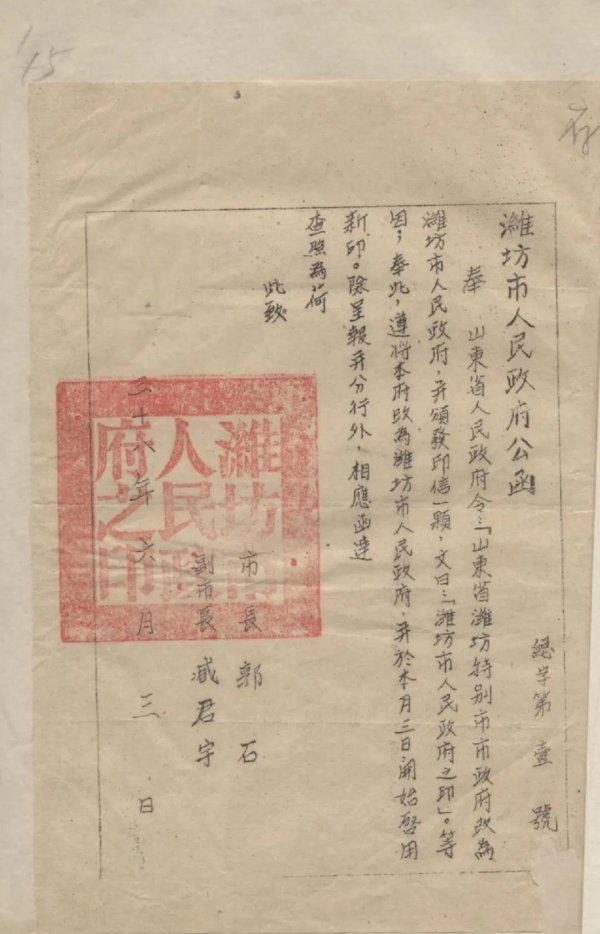 15
存
濰坊市人民政府公函
總字第壹號
奉 山東省人民政府令：「山東省濰坊特別市市政府改為
濰坊市人民政府，并頒發印信一顆，文曰：「濰坊市人民政府之印」。等
因；奉此，遵將本府改為濰坊市人民政府，并於本月三日開始啓用
新印。除呈報并分行外，相應函達
查照為荷
此致
市長 郭石
副市長 臧君宇
三十八年六月三日
濰坊市
人民政
府之印